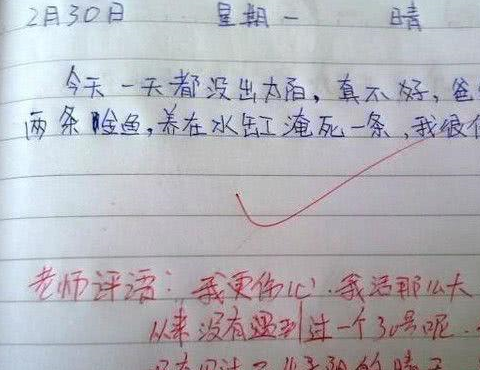 2月30日 星期一 晴
今天一天都没出太陌，真不好，爸
两条金鱼，养在水缸淹死一条，我很
老师评语：我更伤心．我活那么大
从来没有遇到过一个30号呢．